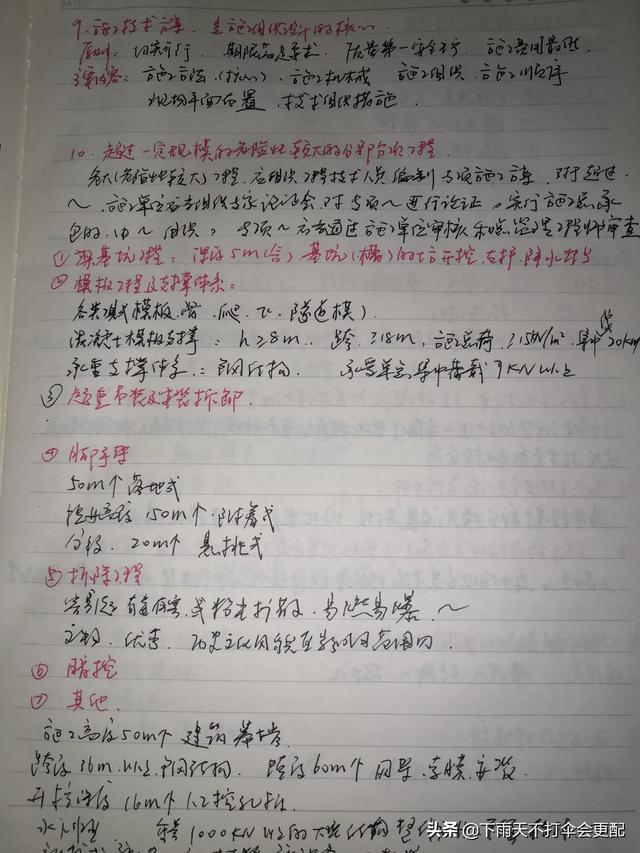 9. 施工技术方案, 是施工组织设计的核心
原则: 切实可行 期限满足要求 质量第一安全生产 施工费用最低
主要内容: 施工方法(核心)、施工机械 施工组织、施工顺序
现场平面布置、技术组织措施
10. 超过一定规模的危险性较大的分部分项工程
危大(危险性较大)工程, 应组织工程技术人员编制专项施工方案, 对于超过
~, 施工单位应当组织专家论证会对专项~进行论证。实行施工总承
包的, 由~组织, 专项~应当通过施工单位审核和总监理工程师审查
① 深基坑工程: 深度5m(含)基坑(槽)的土方开挖、支护、降水
② 模板工程及支撑体系:
各类工具式模板、滑、爬、飞、隧道模)
混凝土模板支撑: h≥8m、跨≥18m, 施工总荷≥15kN/m² 集中 20kN
承重支撑体系: 钢结构 承受单点集中荷载7KN以上
③ 起重吊装及安装拆卸.
④ 脚手架
50m↑落地式
提升高度150m↑附着式
分段、20m↑ 悬挑式
⑤ 拆除工程
有毒有害 易燃易爆 ~
文物、优秀、历史文化风貌区 范围内.
⑥ 暗挖
⑦ 其他.
施工高度50m↑建筑幕墙
跨度36m以上钢结构. 跨度60m↑网架、索膜 安装
开挖深度16m↑人工挖孔桩
重量1000KN以上的大型结构整体
头条 @下雨天不打伞会更配